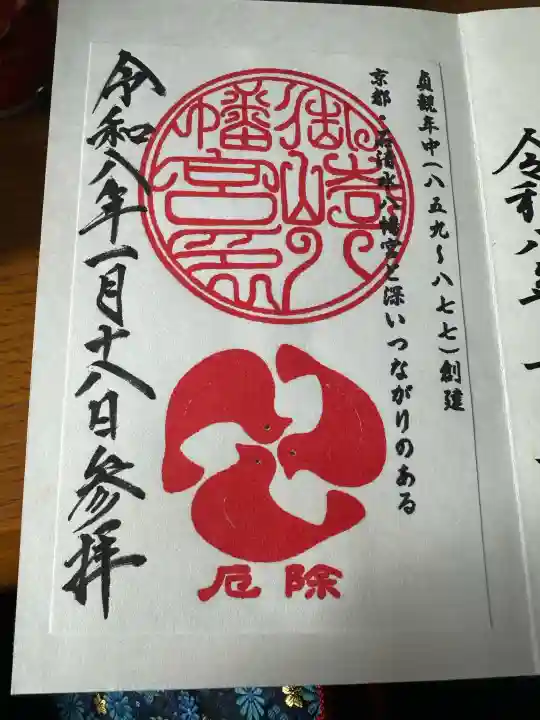 貞観年中(八五九〜八七七)創建
京都・石清水八幡宮と深いつながりのある
令和八年一月十八日参拝
厄除
令和八年一